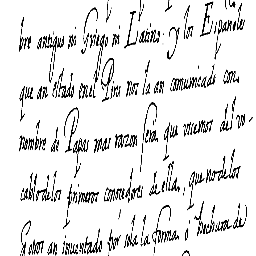 bre antiguo ni Griego ni Latino: y los Españoles
que an estado en el Piru nos la an comunicado con
nombre de Papas mas razon sera que vsemos del vo-
cablo de los primeros conoçedores de ella, que no de los
q otros an inuentado por sola la forma o hechura de